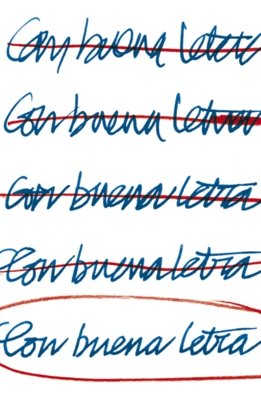 Con buena letra
Con buena letra
Con buena letra
Con buena letra
Con buena letra